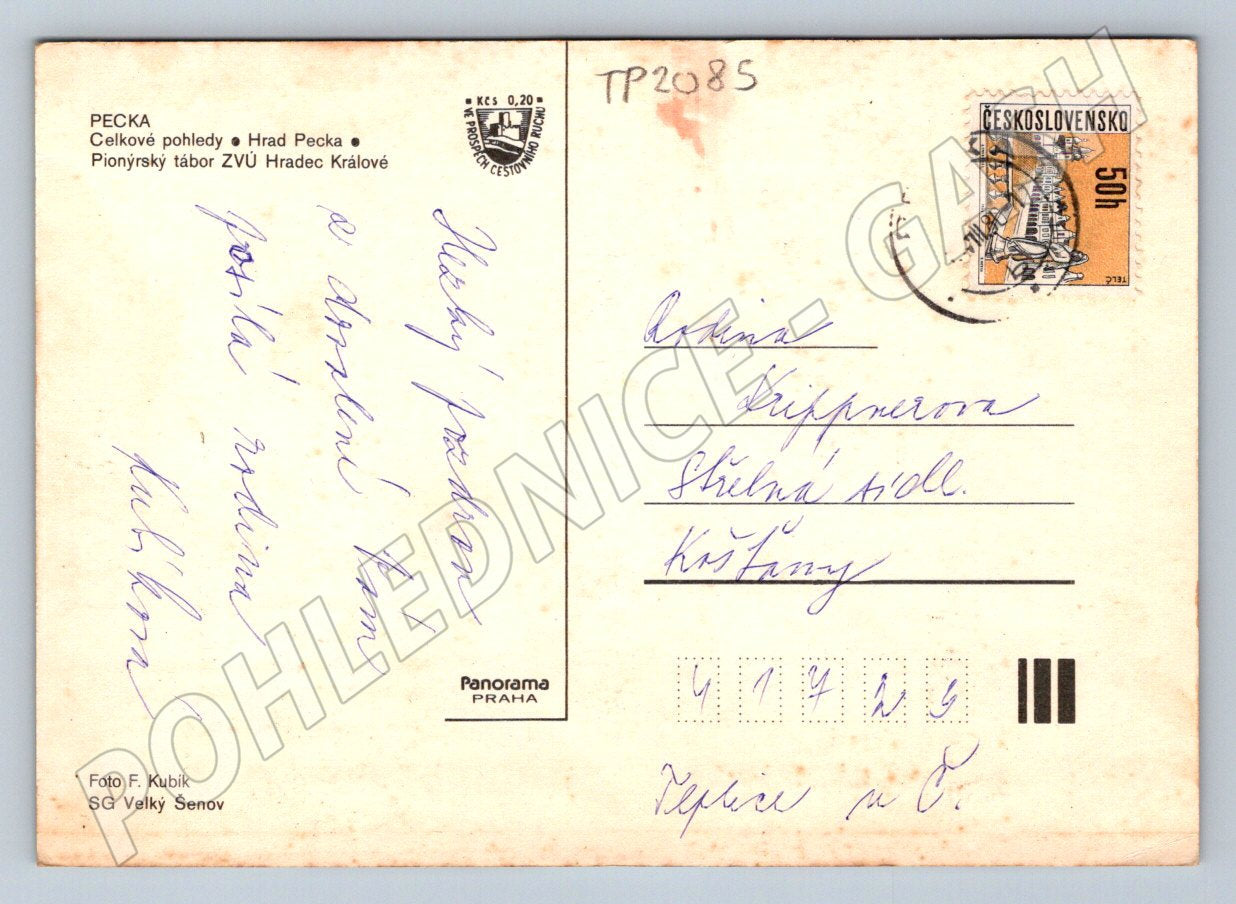 TP2085
PECKA
Celkové pohledy • Hrad Pecka •
Pionýrský tábor ZVÚ Hradec Králové
Kčs 0,20
VE PROSPĚCH CESTOVNÍHO RUCHU
ČESKOSLOVENSKO
50h
TELČ
Hezký pozdrav
z dovolené Vám
posílá rodina
Kubíkova
Rodina
Krippnerova
Střelná sídl.
Košťany
41729
Teplice v Č.
Panorama
PRAHA
Foto F. Kubík
SG Velký Šenov
POHLEDNICE - GASH